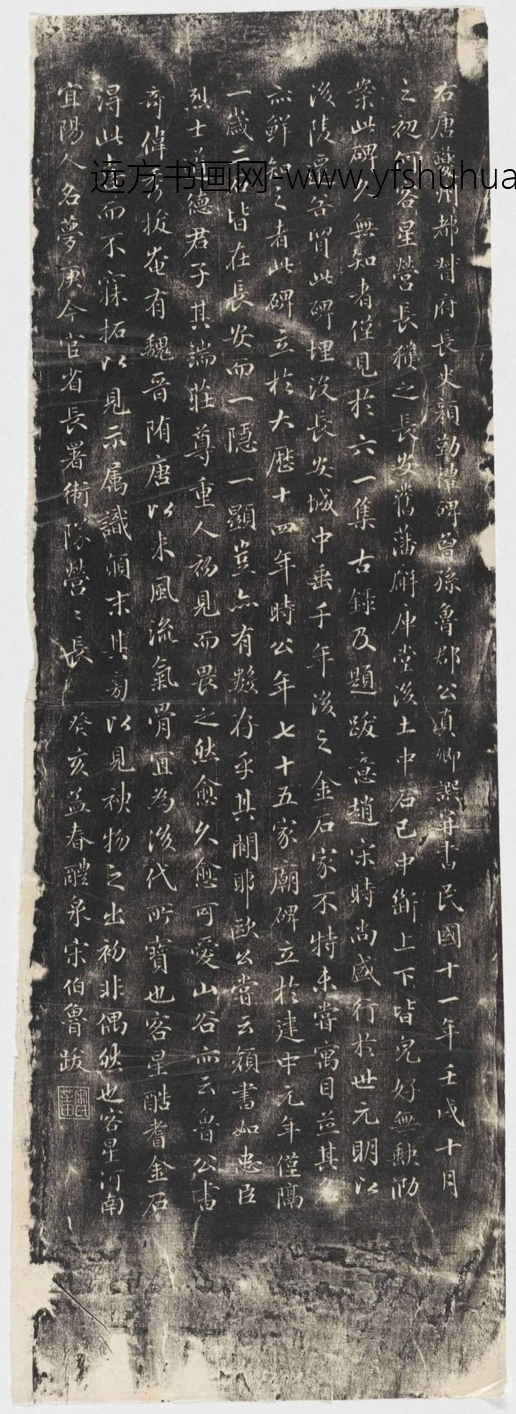 右唐夔州都督府長史顏勤禮碑曾孫魯郡公真卿譔并書民國十一年壬戌十月
之初何客星營長獲之長安舊藩廨庫堂後土中石已中斷上下皆完好無缺泐
案此碑久無知者僅見於六一集古錄及題跋意趙宋時尚盛行於世元明以
後陵谷此碑埋沒長安城中垂千年後之金石家不特未嘗寓目並其名
亦鮮知之者此碑立於大歷十四年時公年七十五家廟碑立於建中元年僅隔
一歲二碑皆在長安而一隱一顯豈亦有數存乎其間耶歐公嘗云顏書如忠臣
烈士道德君子其端莊尊重人初見而畏之然愈久愈可愛山谷亦云魯公書
奇偉秀拔奄有魏晉隋唐以來風流氣骨宜為後代所寶也客星酷耆金石
得此而不寐拓以見示屬識顛末其旁以見神物之出初非偶然也客星河南
宜陽人名夢庚今官省長署衛隊營營長 癸亥孟春醴泉宋伯魯跋
远方书画网-www.yfshuhua